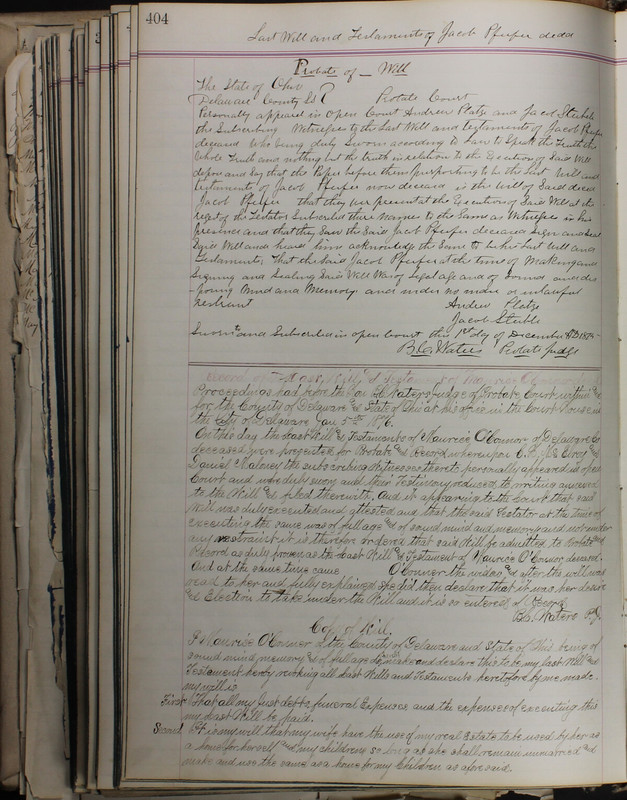 404
Last Will and Testament of Jacob Pfeifer decd
Probate of Will
The State of Ohio
Delaware County SS } Probate Court
Personally appeared in open Court Andrew Platz and Jacob Steible
the Subscribing Witnesses to the Last Will and Testament of Jacob Pfeifer
deceased who being duly Sworn according to Law to Speak the Truth the
Whole Truth and nothing but the truth in relation to the Execution of Said Will
depose and Say that the Paper before them purporting to be the Last Will and
Testament of Jacob Pfeifer now deceased is the Will of Said decd
Jacob Pfeifer that they were present at the Execution of Said Will at the
request of the Testator Subscribed there Names to the Same as Witnesses in his
presence and that they Saw the Said Jacob Pfeifer deceased Sign and Seal
Said Will and heard him acknowledge the Same to be his Last Will and
Testament. That the Said Jacob Pfeifer at the time of Making and
Signing and Sealing Said Will Was of Legal age and of Sound and dis
-posing Mind and Memory and under no undue or unlawful
restraint
Andrew Platz
Jacob Steible
Sworn to and Subscribed in open Court this 1st day of December AD
B.C. Waters Probate Judge
Proceedings had before the Hon B.C. Waters Judge of Probate Court within and
for the County of Delaware and State of Ohio at his office in the Court House in
the City of Delaware Jan 5th 1876.
On this day the Last Will and Testament of Maurice O'Connor of Delaware Co
deceased were presented for Probate and Record whereupon and
Daniel Maloney the subscribing witnesses thereto personally appeared in open
Court and were duly sworn and their Testimony reduced to writing annexed
to the Will and filed therewith, And it appearing to the Court that said
Will was duly executed and attested and that the said Testator at the time of
executing the same was of full age and of sound mind and memory and not under
any restraint it is therefore ordered that said Will be admitted to Probate and
Record as duly proven as the Last Will and Testament of Maurice O'Connor deceased.
And at the same time came O'Connor the widow and after the will was
read to her and fully explained she did then declare that it was her desire
and Election to take under the Will and it is so entered of Record
B.C. Waters P.J.
Copy of Will.
I Maurice O'Connor of the County of Delaware and State of Ohio being of
sound mind memory and of full age do make and declare this to be my last Will and
Testament hereby revoking all Last Wills and Testaments heretofore by me made.
my will is
First That all my just debts funeral Expenses and the expenses of executing this
my Last Will be paid.
Second It is my will that my wife have the use of my real Estate to be used by her as
a home for herself and my children so long as she shall remain unmarried and
make and use the same as a home for my Children as aforesaid